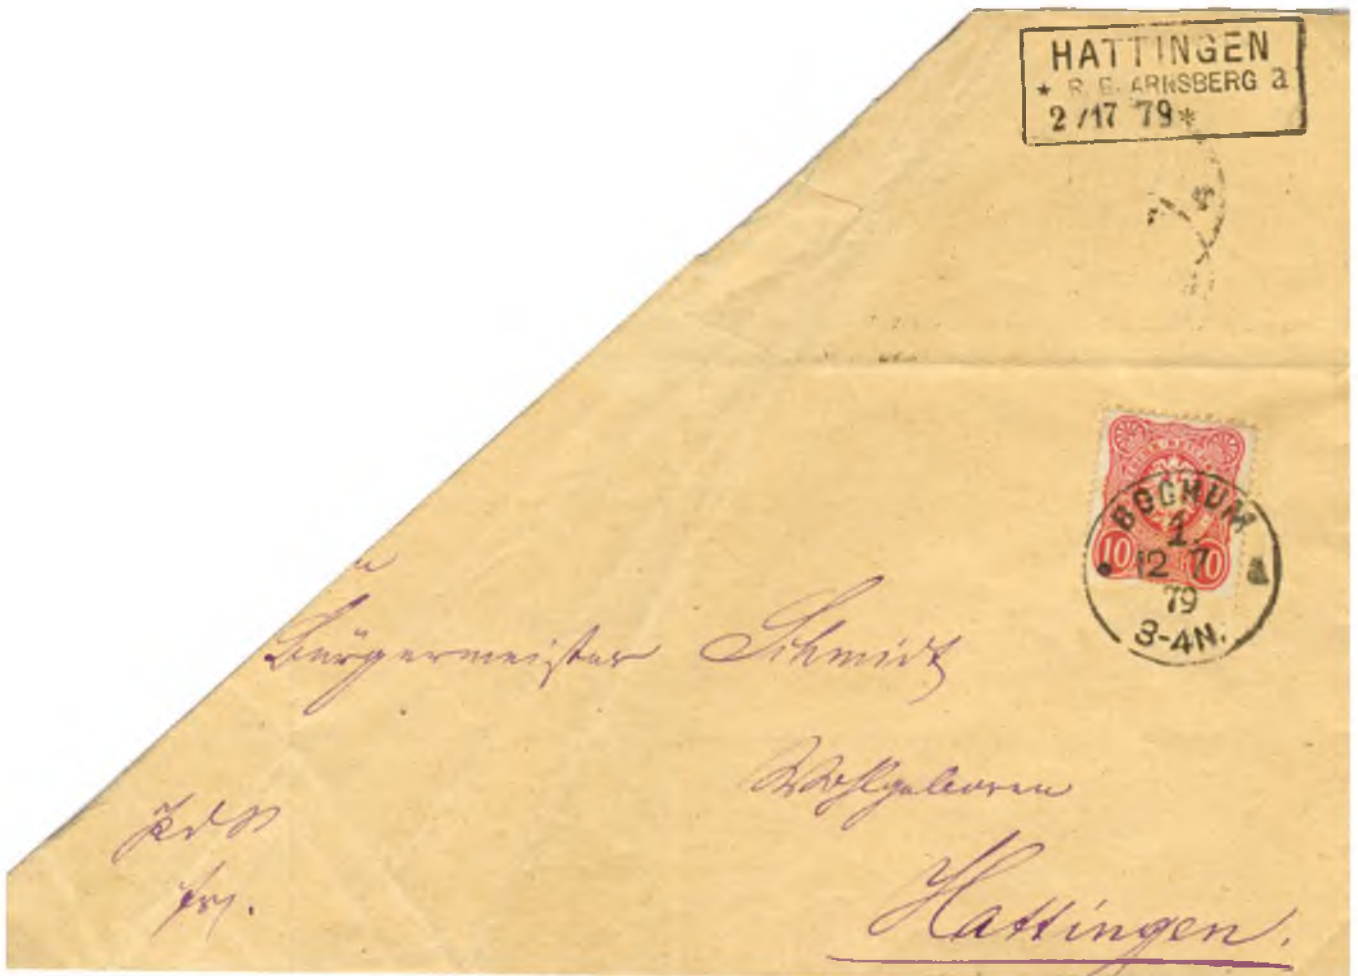 HATTINGEN
* R. B. ARNSBERG a
2 /17 79 *
BOCHUM
1.
12 7
79
3-4N.
a
10 10
Bürgermeister Schmidt
Wohlgeboren
Hattingen.